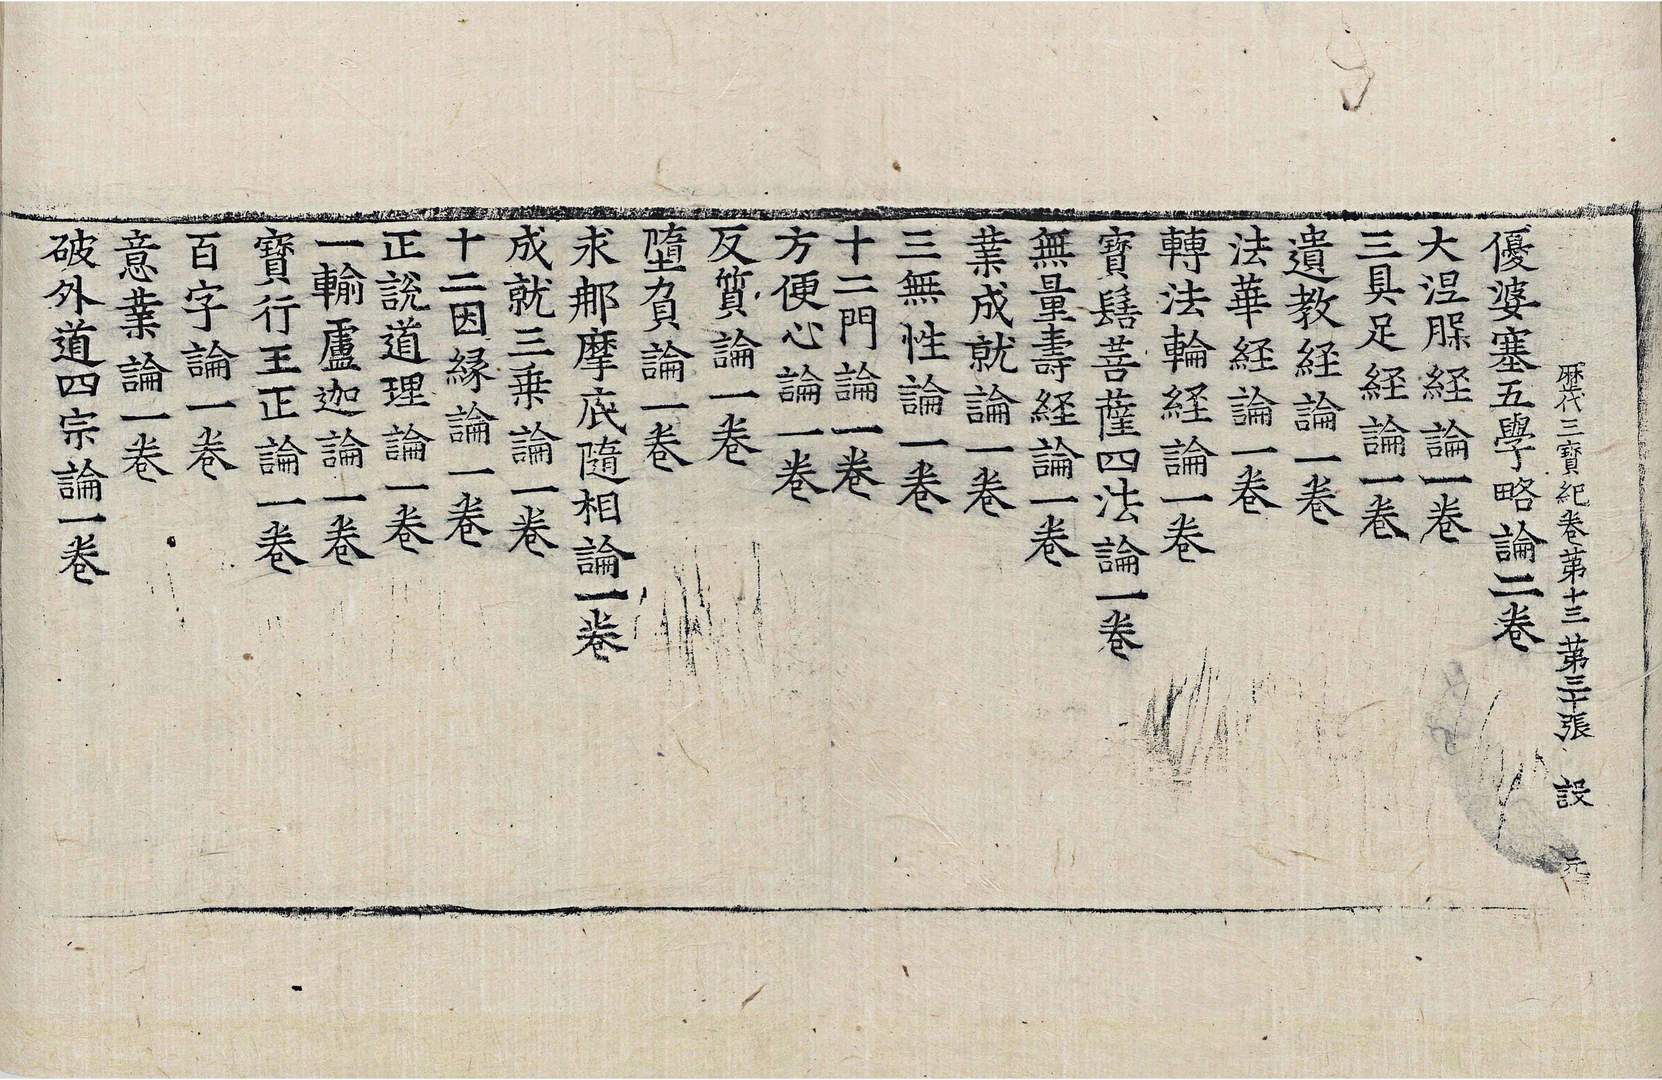 歴代三寶紀卷苐十三 苐三十張 設 元
優婆塞五學略論二卷
大涅槃経論一卷
三具足経論一卷
遺教経論一卷
法華経論一卷
轉法輪経論一卷
寳髻菩薩四法論一卷
無量壽経論一卷
業成就論一卷
三無性論一卷
十二門論一卷
方便心論一卷
反質論一卷
墮負論一卷
求那摩底隨相論一卷
成就三乗論一卷
十二因縁論一卷
正說道理論一卷
一輸盧迦論一卷
寳行王正論一卷
百字論一卷
意業論一卷
破外道四宗論一卷